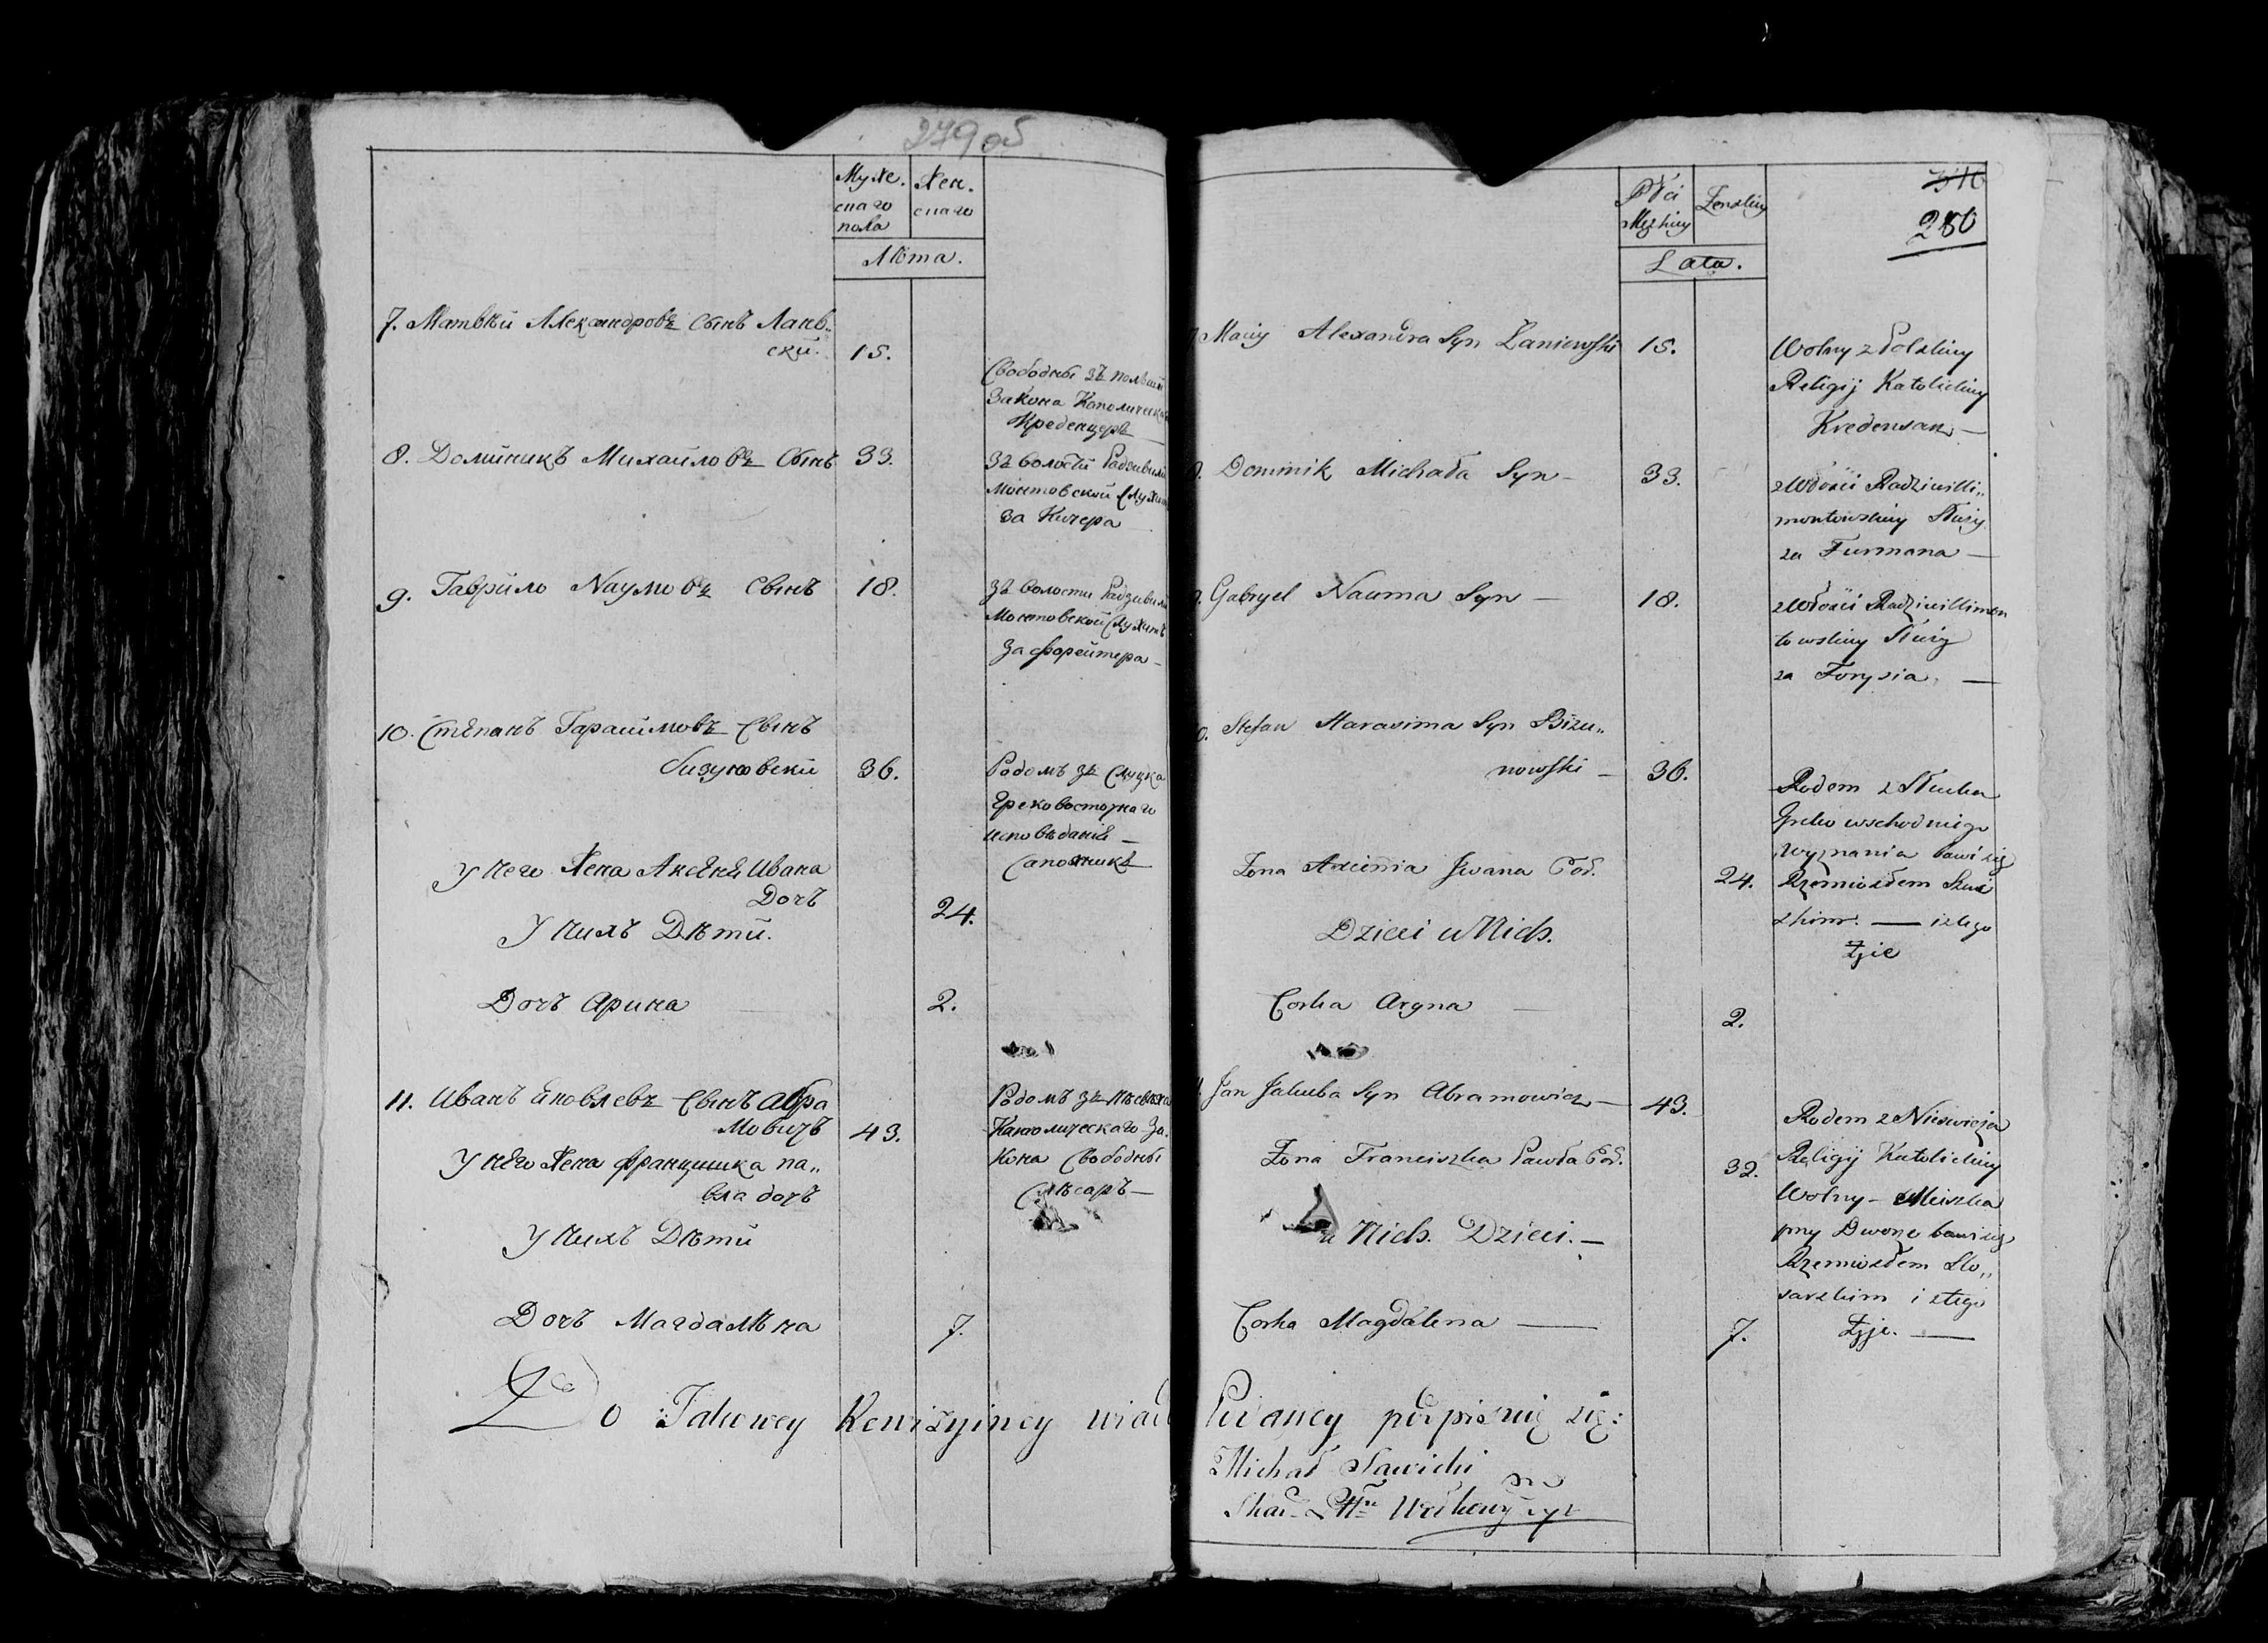 279 об
Муже. Жен.
скаго скаго
пола
Лѣта.
7. Матвѣй Александровъ сынъ Ланев„
ский. 15.
Свободный зъ
Закона Католическ
Креденцеръ —
8. Доминикъ Михайловъ Сынъ 33.
зъ волости Радзивили
Монтовской Служит
за Кучера
9. Гаврило Наумовъ Сынъ 18.
зъ волости Радзивили
Монтовской Служитъ
за форейтера —
10. Степанъ Гарасимовъ Сынъ
бизуновский 36.
Родомъ зъ Слуцка
Грековосточнаго
исповѣданія —
Сапожникъ
У него Жена Аксѣня Ивана
Дочъ 24.
У нихъ Дѣти.
Дочъ Арина 2.
11. Иванъ Яковлевъ Сынъ Абра
мовичъ 43.
Родомъ зъ Несвѣжа
Католическаго За„
кона Свободный
Слѣсаръ —
У него Жена францишка па„
вла дочъ
У нихъ Дѣти
Дочъ Магдалѣна 7.
Do Takowey Rewizyiney
310
280
Płci Żenskiey
Męzkiey
Lata.
Maciey Alexandra Syn Łaniewski 15.
Wolny z Polskiey
Religij Katolickiey
Kredensarz —
Dominik Michała Syn — 33.
z Włości Radziwilli„
montowskiey Służy
za Furmana —
9. Gabryel Nauma Syn — 18.
z Włości Radziwillimon
towskiey Służy
za Forysia. —
0. Stefan Harasima Syn Bizu„
nowski — 36.
Rodem z Słucka
Greko wschodniego
wyznania bawi się
Rzemiosłem Szew
zkim. — i z tego
żyie
Żona Axienia Jwana Cod. 24.
Dzieci u Nich.
Corka Aryna — 2.
Jan Jakuba Syn Abramowicz — 43.
Rodem z Nieswieża
Religij Katolickiey
Wolny — Mieszka
przy Dworze bawi się
Rzemiosłem Slo„
sarskim i z tego
Żyje. —
Żona Franciszka Pawła Cod. 32.
u Nich. Dzieci. —
Corka Magdalena — 7.
podpisuię się:
Michał Sawicki